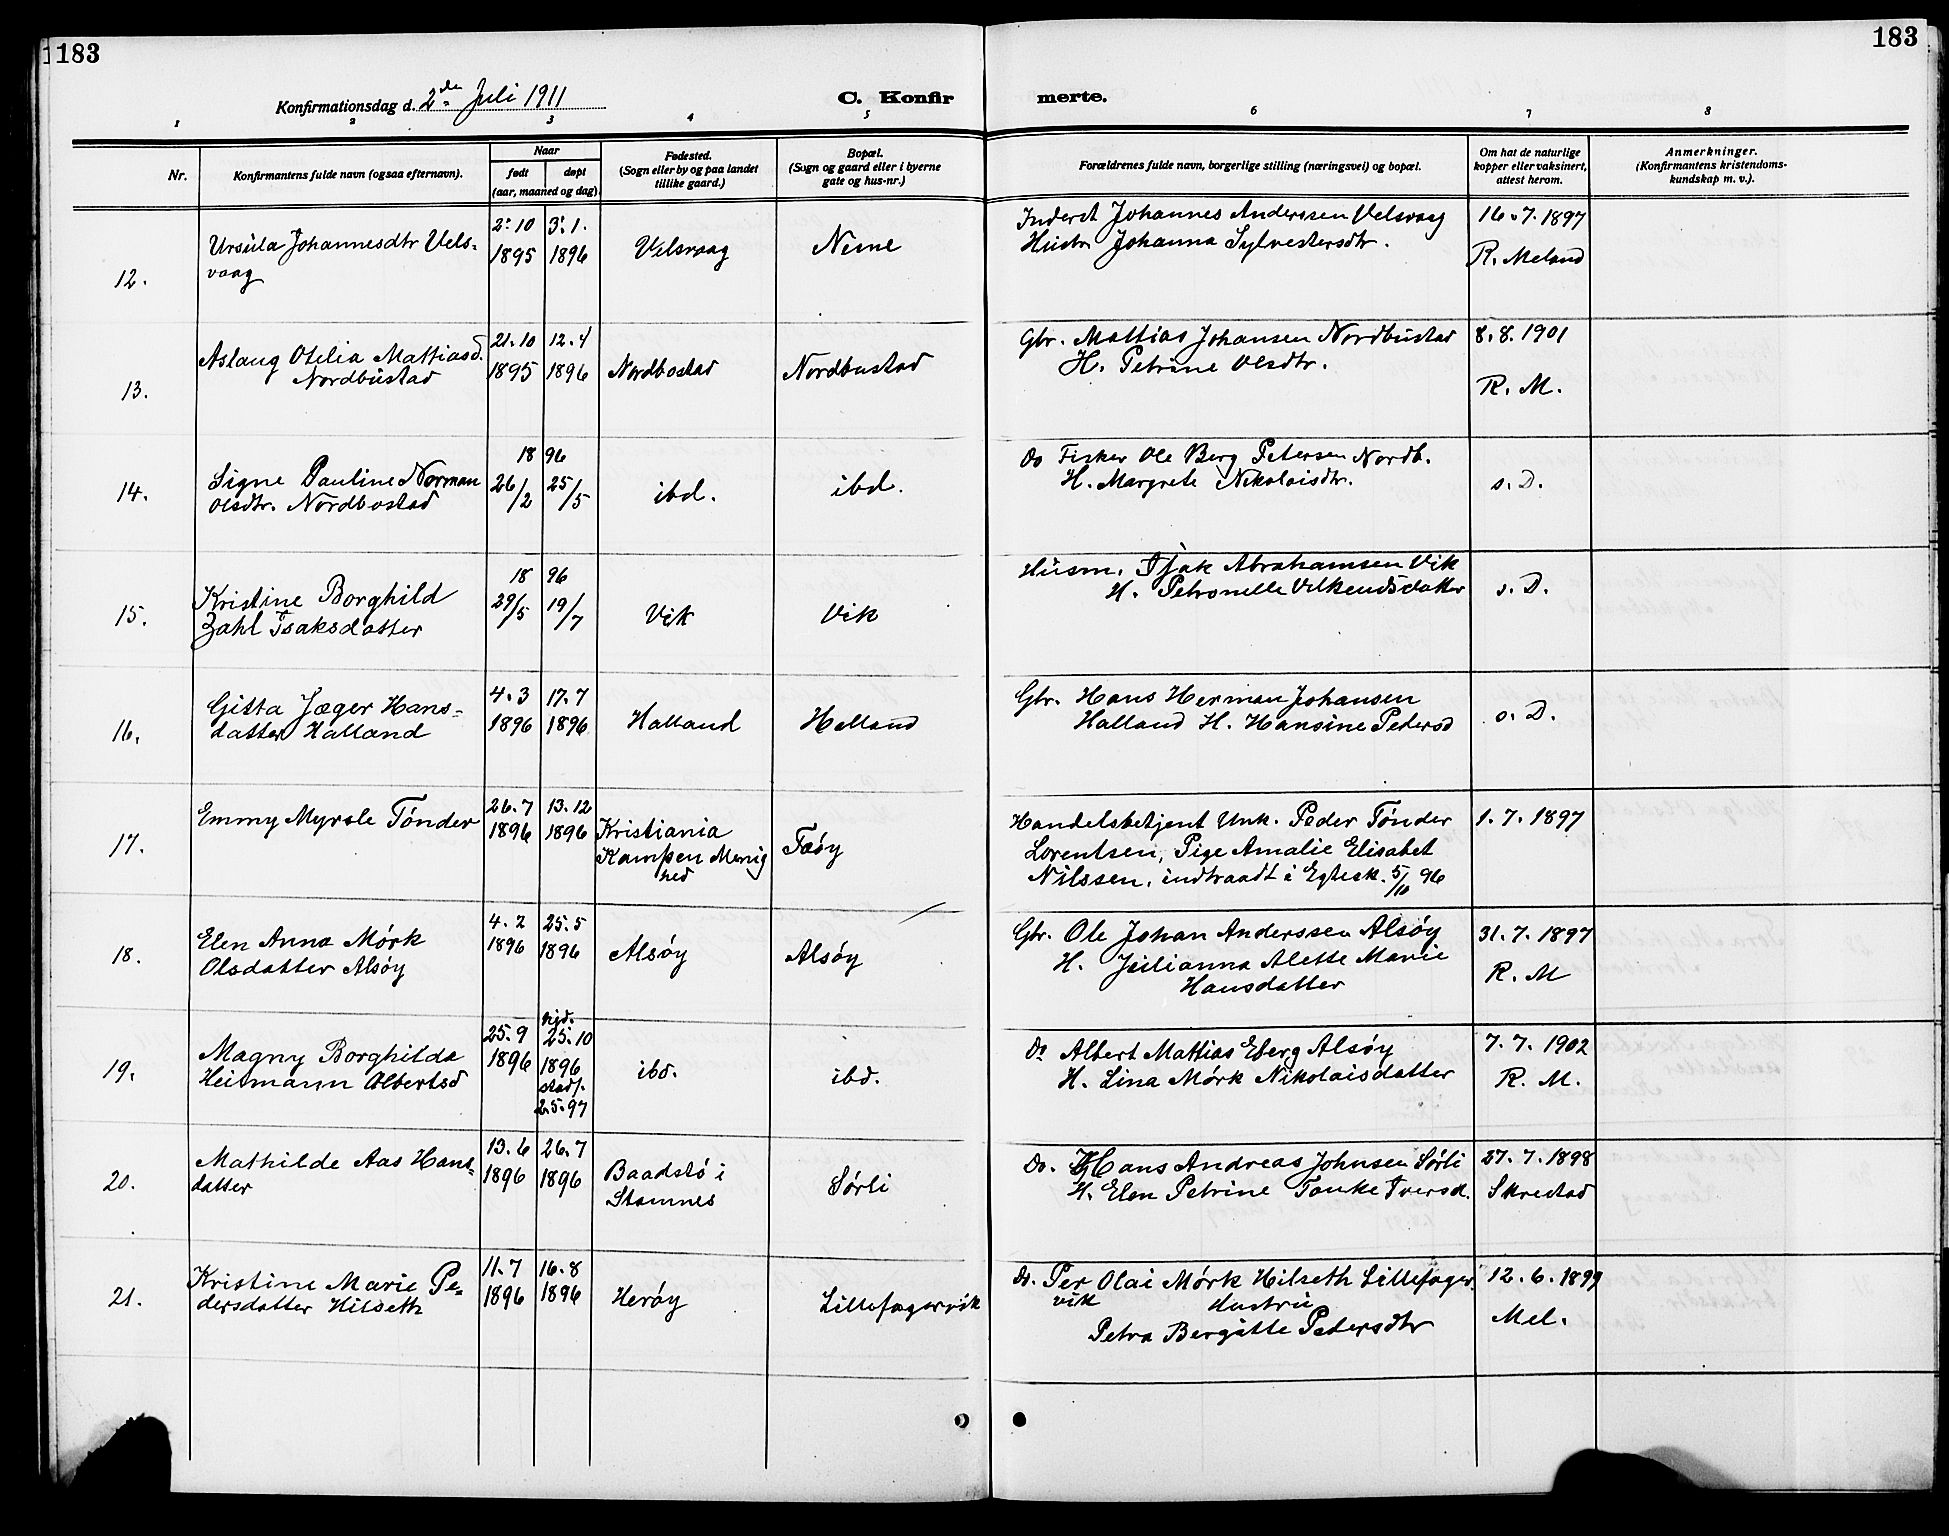 183
183
Konfirmationsdag d. 2den Juli 1911
C. Konfir
merte.
1 2 3 4 5 6 7 8
Nr.
Konfirmantens fulde navn (ogsaa efternavn).
Naar
født døpt
(aar, maaned og dag).
Fødested.
(Sogn eller by og paa landet
tillike gaard.)
Bopæl.
(Sogn og gaard eller i byerne
gate og hus-nr.)
Forældrenes fulde navn, borgerlige stilling (næringsvei) og bopæl.
Om hat de naturlige
kopper eller vaksinert,
attest herom.
Anmerkninger.
(Konfirmantens kristendoms-
kundskap m. v.).
12.
Ursula Johannesdtr Vels-
vaag
2.10
1895
3.1.
1896
Velsvaag
Nesne
Inderst Johannes Anderssen Velsvaag
Hustr. Johanna Sylvestersdtr.
16.7.1897
R. Meland
13.
Aslaug Otelia Mattiasd.
Nordbustad
21.10
1895
12.4
1896
Nordbostad
Nordbustad
Gbr. Mattias Johansen Nordbustad
H. Petrine Olsdtr.
8.8.1901
R. M.
14.
Signe Pauline Norman
Olsdtr. Nordbostad
18 96
26/2
25/5
ibd.
ibd.
Do Fisker Ole Berg Petersen Nordb.
H. Margrete Nikolaisdtr.
s. D.
15.
Kristine Borghild
Zahl Isaksdatter
18 96
29/5
19/7
Vik
Vik
Husm. Isak Abrahamsen Vik
H. Petronelle Vilkensdatter
s. D.
16.
Gitta Jæger Hans-
datter Halland
4.3
1896
17.7
1896
Halland
Halland
Gbr. Hans Herman Johansen
Halland H. Hansine Pedersd
s. D.
17.
Emmy Myrsle Tónder
26.7
1896
13.12
1896
Kristiania
Kampen Menig
hed
Tøóy
Handelsbetjent Unk. Peder Tónder
Lorentsen, Pige Amalie Elisabet
Nilssen, indtraadt i Egtesk. 5/10 96
1.7.1897
18.
Elen Anna Mórk
Olsdatter Alsóy
4.2
1896
25.5
1896
Alsóy
Alsóy
Gbr. Ole Johan Anderssen Alsóy
H. Julianna Alette Marie
Hansdatter
31.7.1897
R. M
19.
Magny Borghilda
Heitmann Albertsd
25.9
1896
hjd.
25.10
1896
stadf.
2.5.97
ibd.
ibd.
Do Albert Mattias Eberg Alsóy
H. Lina Mórk Nikolaisdatter
7.7.1902
R. M.
20.
Mathilde Aas Hans-
datter
13.6
1896
26.7
1896
Baadstó i
Stamnes
Sórli
Do. Hans Andreas Johnsen Sórli
H. Elen Petrine Tanke Iversd.
27.7.1898
Skrestad
21.
Kristine Marie Pe-
dersdatter Hilseth
11.7
1896
16.8
1896
Heróy
Lillefagervik
Do. Per Olai Mórk Hilseth Lillefager
vik Hustru
Petra Bergitte Pedersdtr
12.6.1899
Mel.